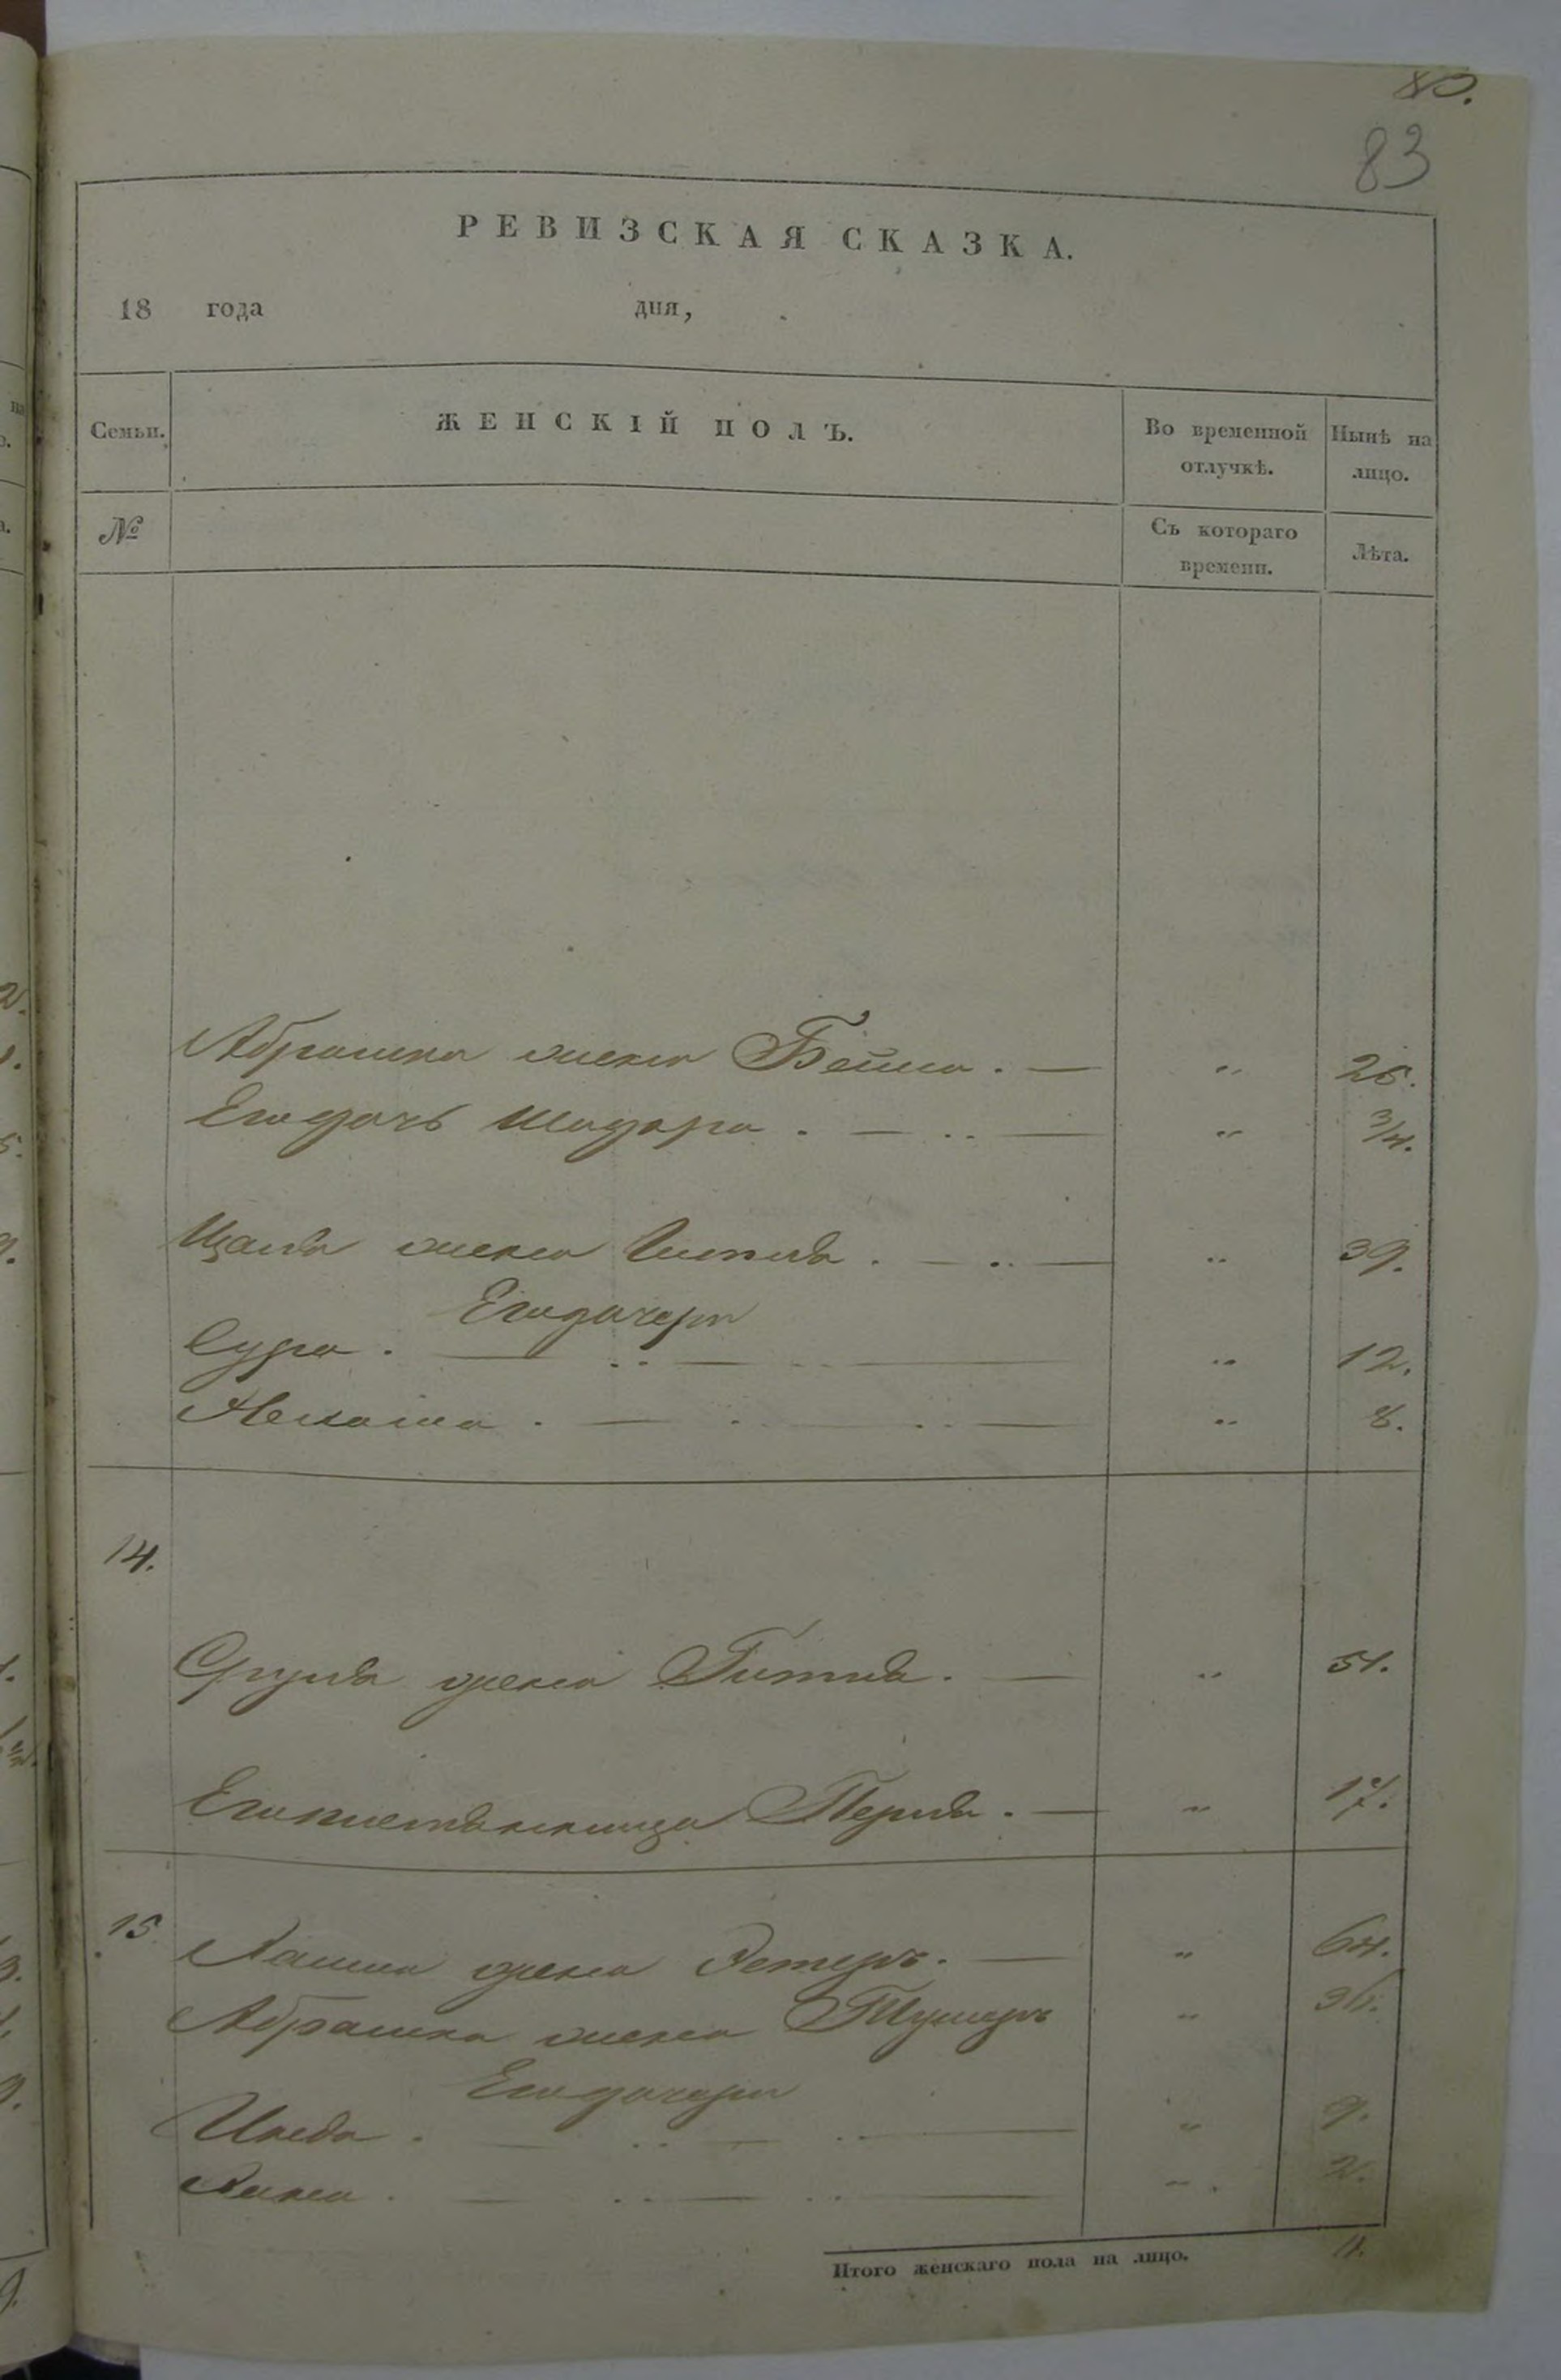 80.
83
РЕВИЗСКАЯ СКАЗКА.
18 года дня,
Семьи. ЖЕНСКІЙ ПОЛЪ. Во временной отлучкѣ. Нынѣ на лицо.
№ Съ котораго времени. Лѣта.
Абрашка жена Бейла. — „ 26.
Его дочь Шадра. — „ 3/4.
жена — „ 39.
Его дочери
Сура. — „ 12.
— „ 8.
14.
Сруля жена Гитля. — „ 51.
Его племянница Перля. — „ 17.
15
жена Эстеръ. — „ 64.
Абрашка жена „ 36.
Его дочери
— „ 9.
— „ 2.
Итого женскаго пола на лицо. 11.